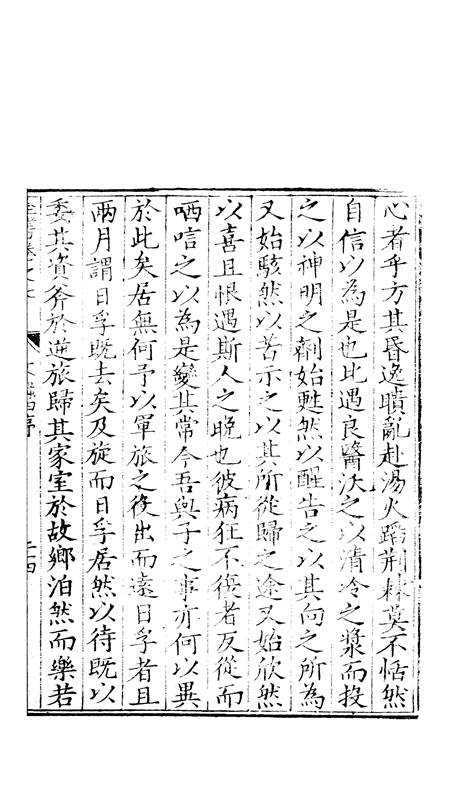 心者乎方其昏逸瞶亂赴湯火蹈荆棘莫不恬然
自信以為是也比遇良醫沃之以清冷之漿而投
之以神明之劑始甦然以醒告之以其向之所為
又始駭然以苦示之以其所從歸之途又始欣然
以喜且恨遇斯人之晚也彼病狂不復者反從而
哂唁之以為是變其常今吾與子之事亦何以異
於此矣居無何予以軍旅之役出而遠日孚者且
兩月謂日孚既去矣及旋而日孚居然以待既以
委其資斧於逆旅歸其家室於故鄉泊然而樂若
全書卷之七
文錄四序
二十四